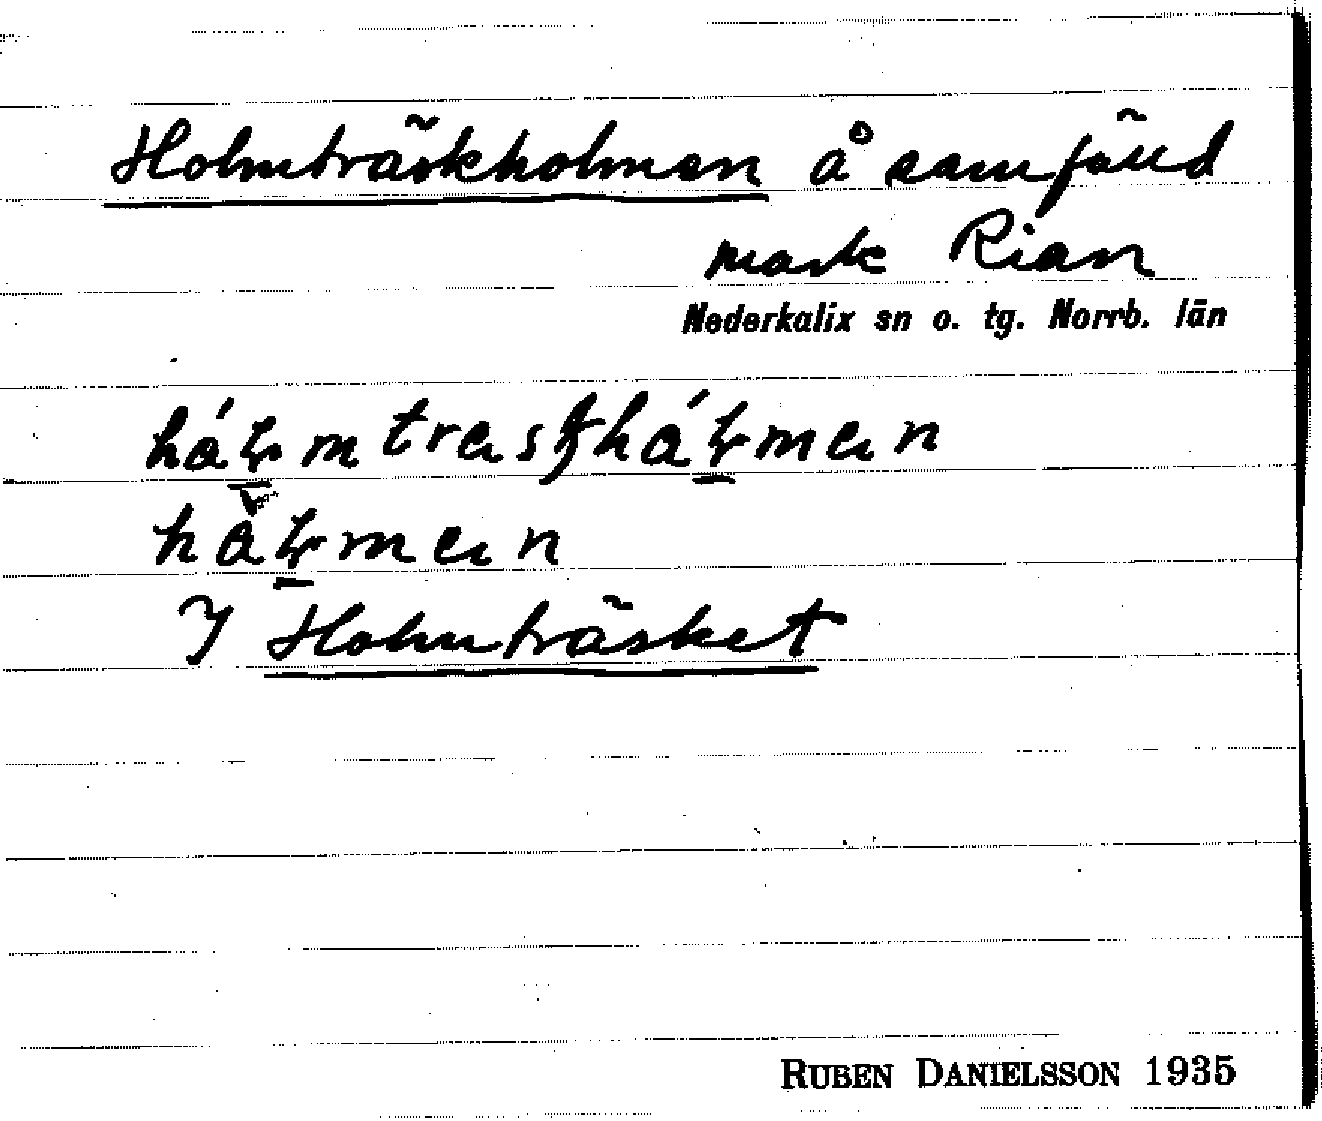 Holmträskholmen å samfälld
mark Rian
Nederkalix sn o. tg. Norrb. län
I Holmträsket
RUBEN DANIELSSON 1935